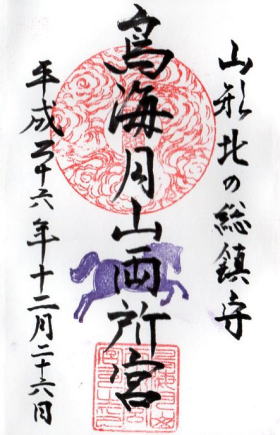 山形北の総鎮守
鳥海月山両所宮
平成二十六年十二月二十六日